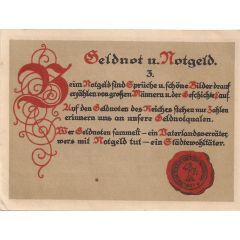 Geldnot u. Notgeld.
3.
Beim Notgeld sind Sprüche u. schöne Bilder drauf
erzählen von großen Männern u. der Geschichte Lauf.
Auf den Geldnoten des Reiches stehen nur Zahlen
erinnern uns an unsere Geldnotqualen.
Wer Geldnoten sammelt – ein Vaterlandsverräter,
wers mit Notgeld tut – ein Städtewohltäter.